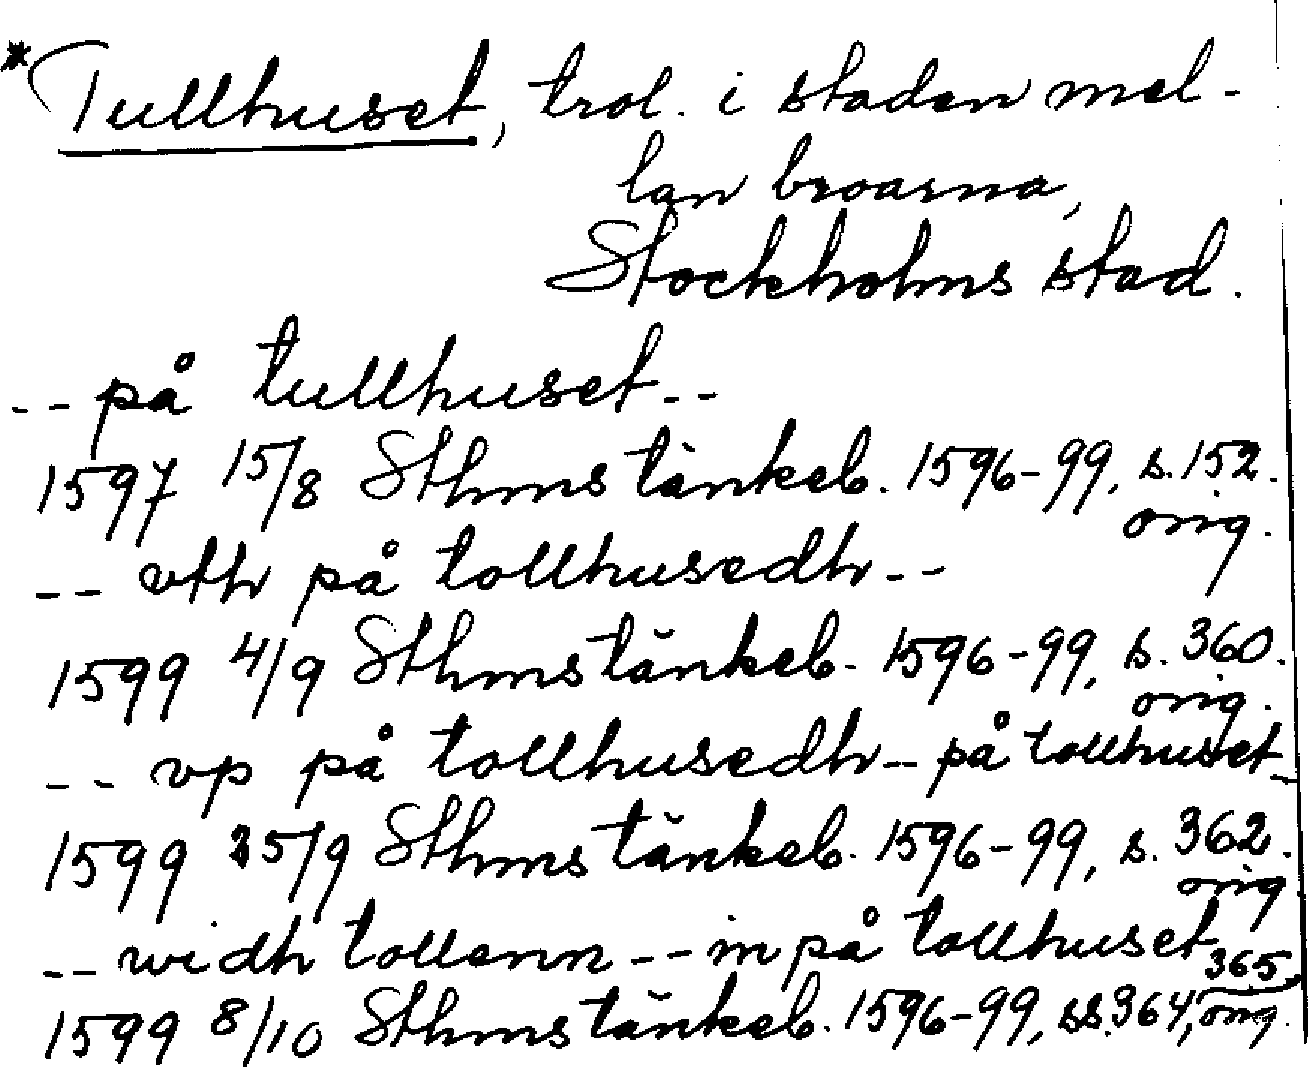 *Tullhuset, trol. i staden mel-
lan broarna,
Stockholms stad.
-- på tullhuset --
1597 15/8 Sthms tänkeb. 1596-99, s. 152.
orig.
-- vth på tollhusedh --
1599 4/9 Sthms tänkeb. 1596-99, s. 360.
orig.
-- vp på tollhusedh -- på tollhuset --
1599 25/9 Sthms tänkeb. 1596-99, s. 362.
orig.
-- widh tollenn -- in på tollhuset
1599 8/10 Sthms tänkeb. 1596-99, ss. 364, 365, orig.